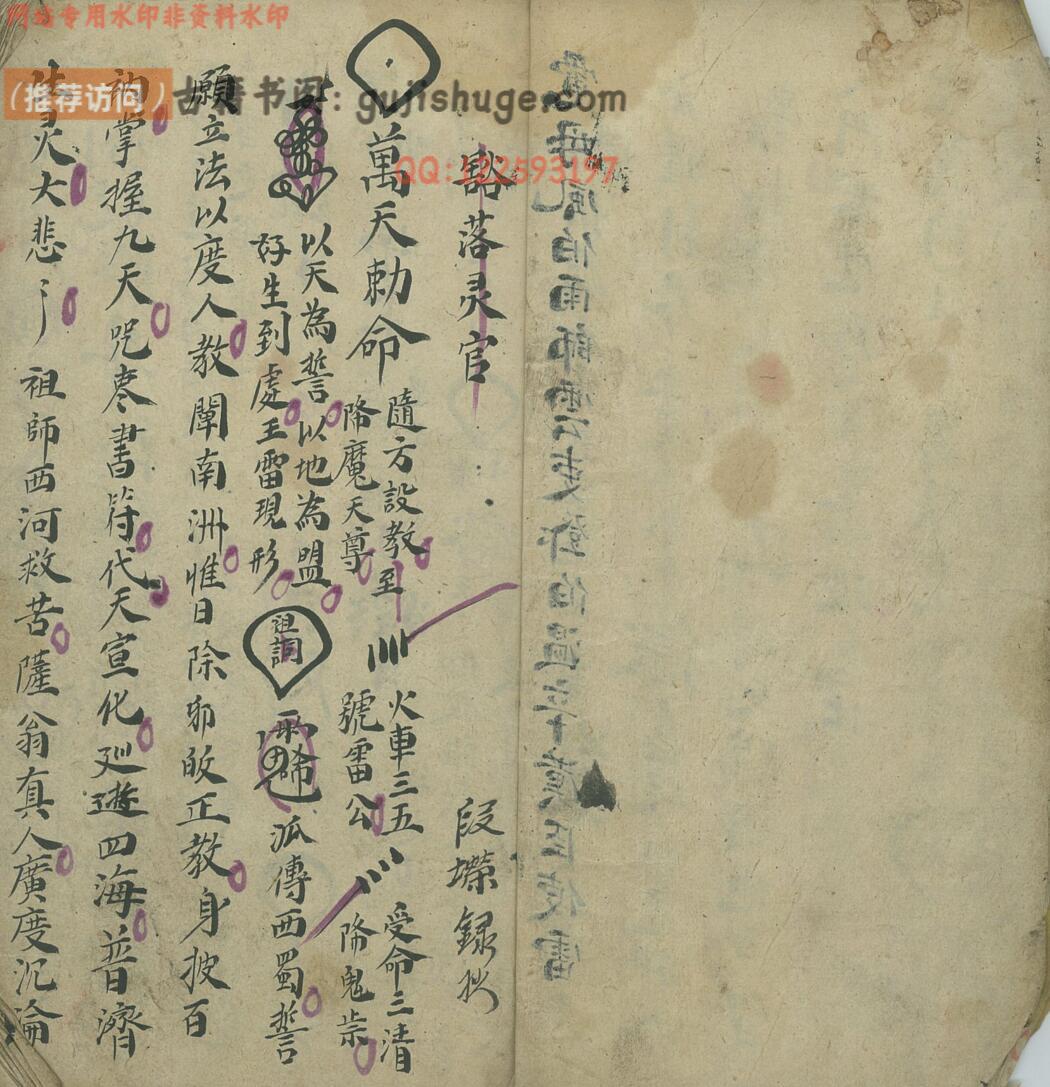 网站专用水印非资料水印
（推荐访问）古籍书阁：gujishuge.com
QQ:122593197
豁落灵官
段 録抄
萬天勅命
隨方設教至
降魔天尊
火車三五
號雷公
受命三清
降鬼祟
以天為誓以地為盟
好生到處王雷現形
祖詞
派傳西蜀誓
願立法以度人教闡南洲惟日除邪皈正教身披百
衲掌握九天咒枣書符代天宣化廵遊四海普濟
生灵大悲
祖師西河救苦薩翁真人廣度沉淪